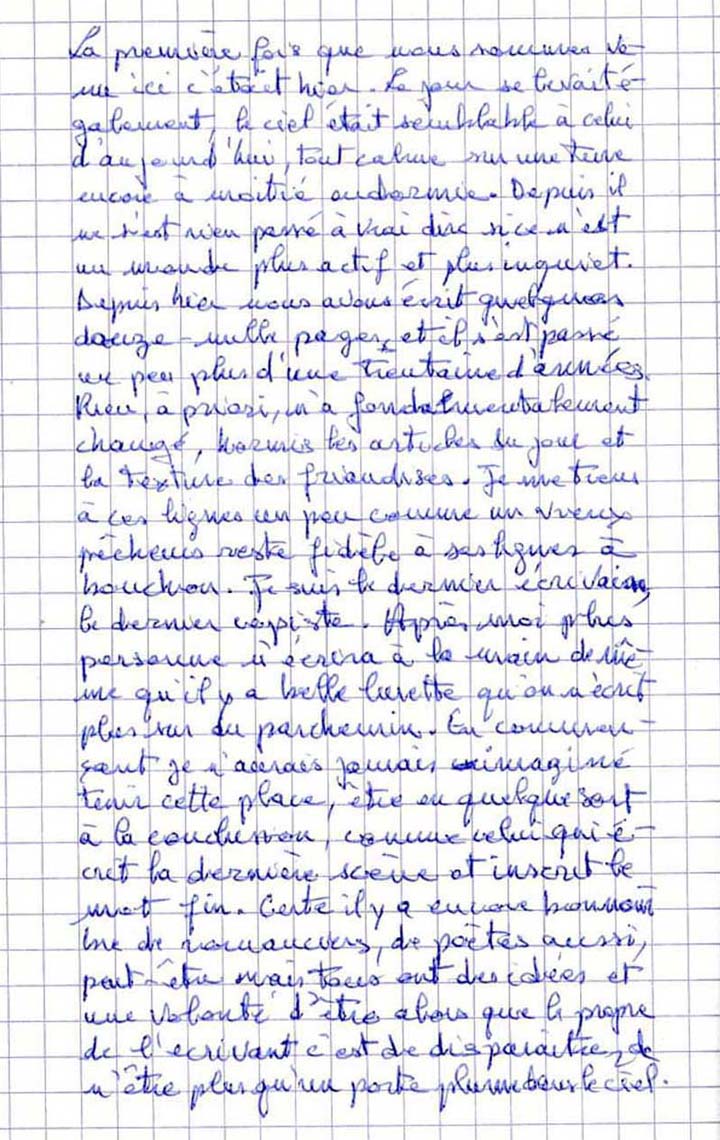 La première fois que nous sommes ve-
nu ici c'était hier. Le jour se levait é-
galement, le ciel était semblable à celui
d'aujourd'hui, tout calme sur une terre
encore à moitié endormie. Depuis il
ne s'est rien passé à vrai dire si ce n'est
un monde plus actif et plus inquiet.
Depuis hier nous avons écrit quelques
douze-mille pages, et il s'est passé
un peu plus d'une trentaine d'années.
Rien, à priori, n'a fondalmentalement
changé, hormis les articles du jour et
la texture des friandises. Je me tiens
à ces lignes un peu comme un vieux
pêcheurs reste fidèle à ses lignes à
bouchon. Je suis le dernier écrivain,
le dernier copiste. Après moi plus
personne n'écrira à la main de mê-
me qu'il y a belle lurette qu'on n'écrit
plus sur du parchemin. En commen-
sant je n'aurais jamais imaginé
tenir cette place, être en quelque sort
à la conclusion, comme celui qui é-
crit la dernière scène et inscrit le
mot fin. Certe il y a encore bon nom
bre de romanciers, de poètes aussi,
peut-être mais tous ont des idées et
une volonté d'être alors que le propre
de l'écrivant c'est de disparaître, de
n'être plus qu'un porte plume sous le ciel.